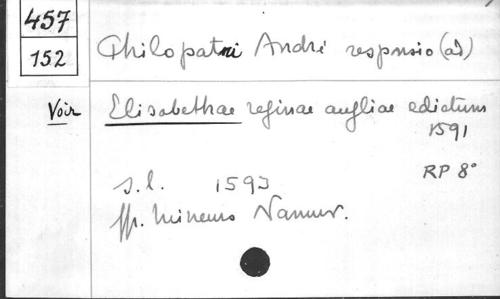 457
152
Philopatri André responsio (ad)
Voir Elisabethae reginae angliae edictum
1591
RP 8°
s.l. 1593
ff. mineurs Namur.